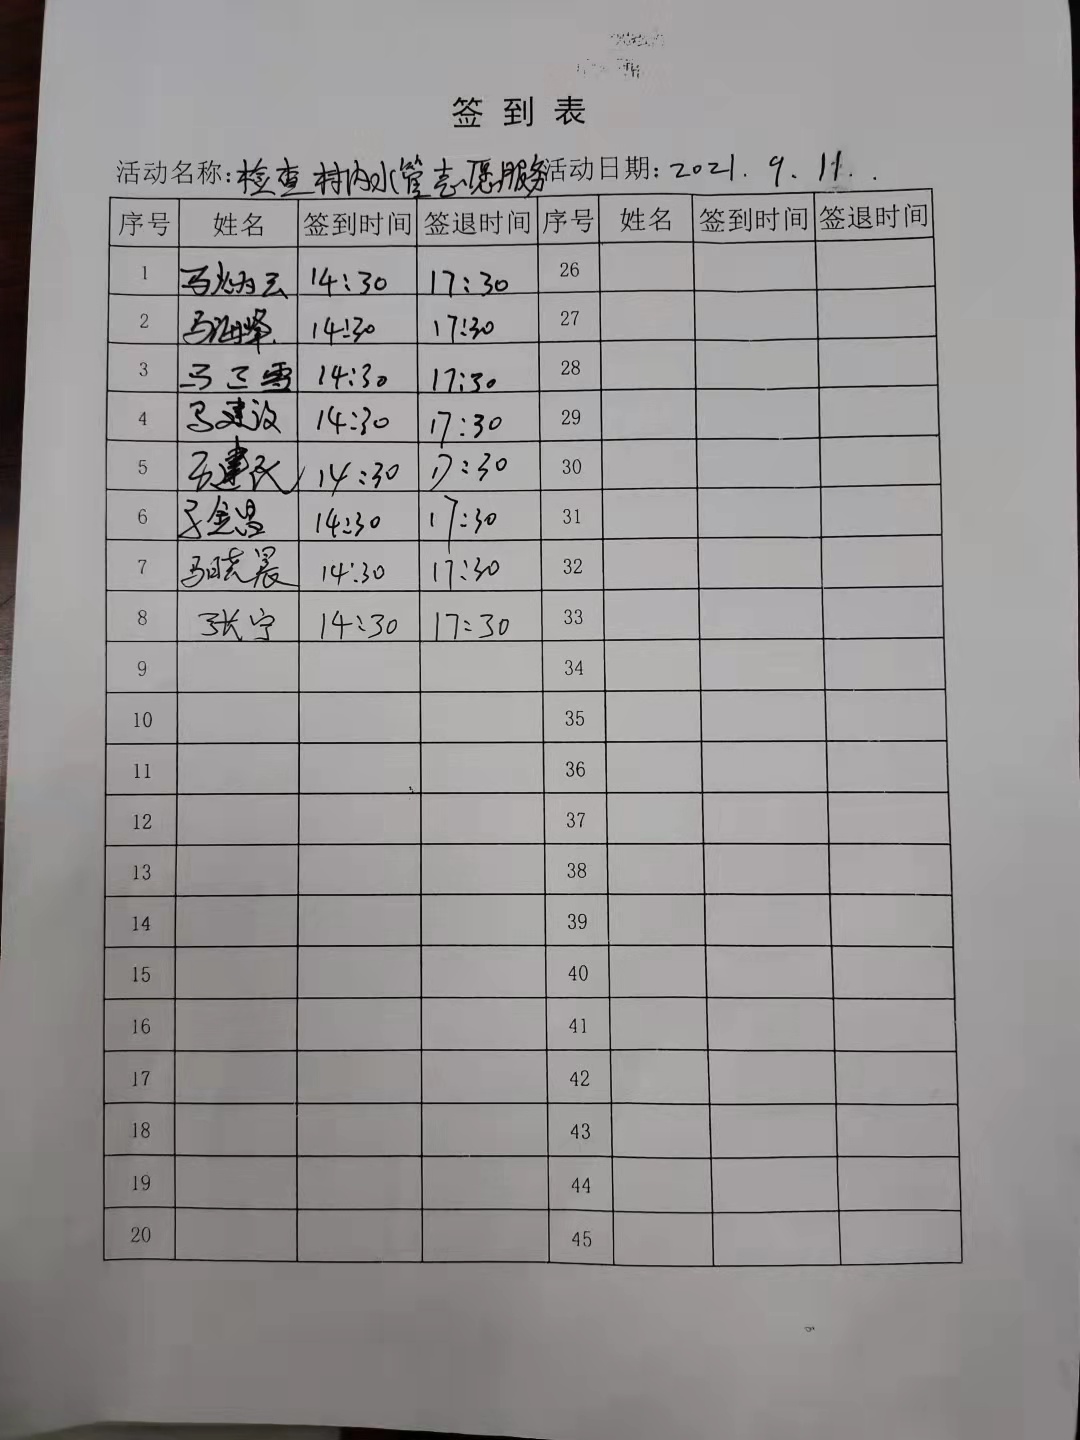 签到表
活动名称:检查村内水管志愿服务 活动日期:2021.9.11.
序号 姓名 签到时间 签退时间 序号 姓名 签到时间 签退时间
1 马 云 14:30 17:30 26
2 马海峰 14:30 17:30 27
3 马 雪 14:30 17:30 28
4 马建设 14:30 17:30 29
5 建民 14:30 17:30 30
6 金昌 14:30 17:30 31
7 马晓晨 14:30 17:30 32
8 张宁 14:30 17:30 33
9 34
10 35
11 36
12 37
13 38
14 39
15 40
16 41
17 42
18 43
19 44
20 45